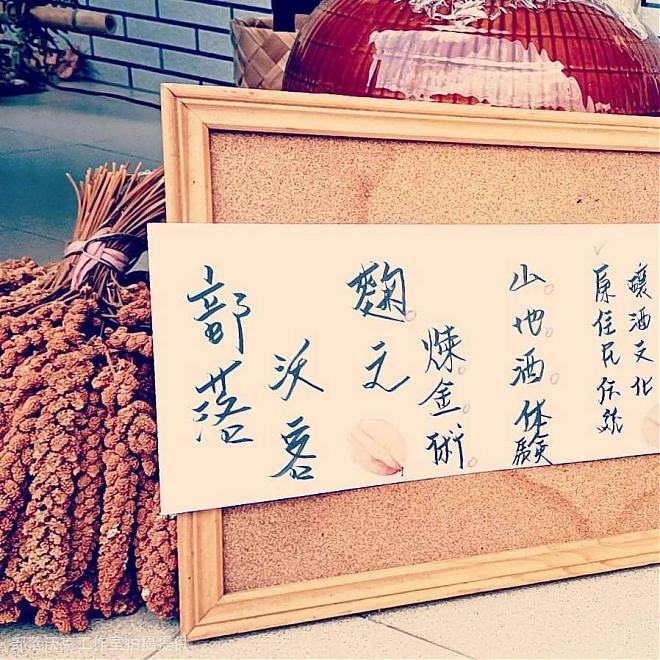 部落
沃客
麴之
煉金術
山地酒体驗
原住民伝統
釀酒文化
部落沃客工作室拍攝提供